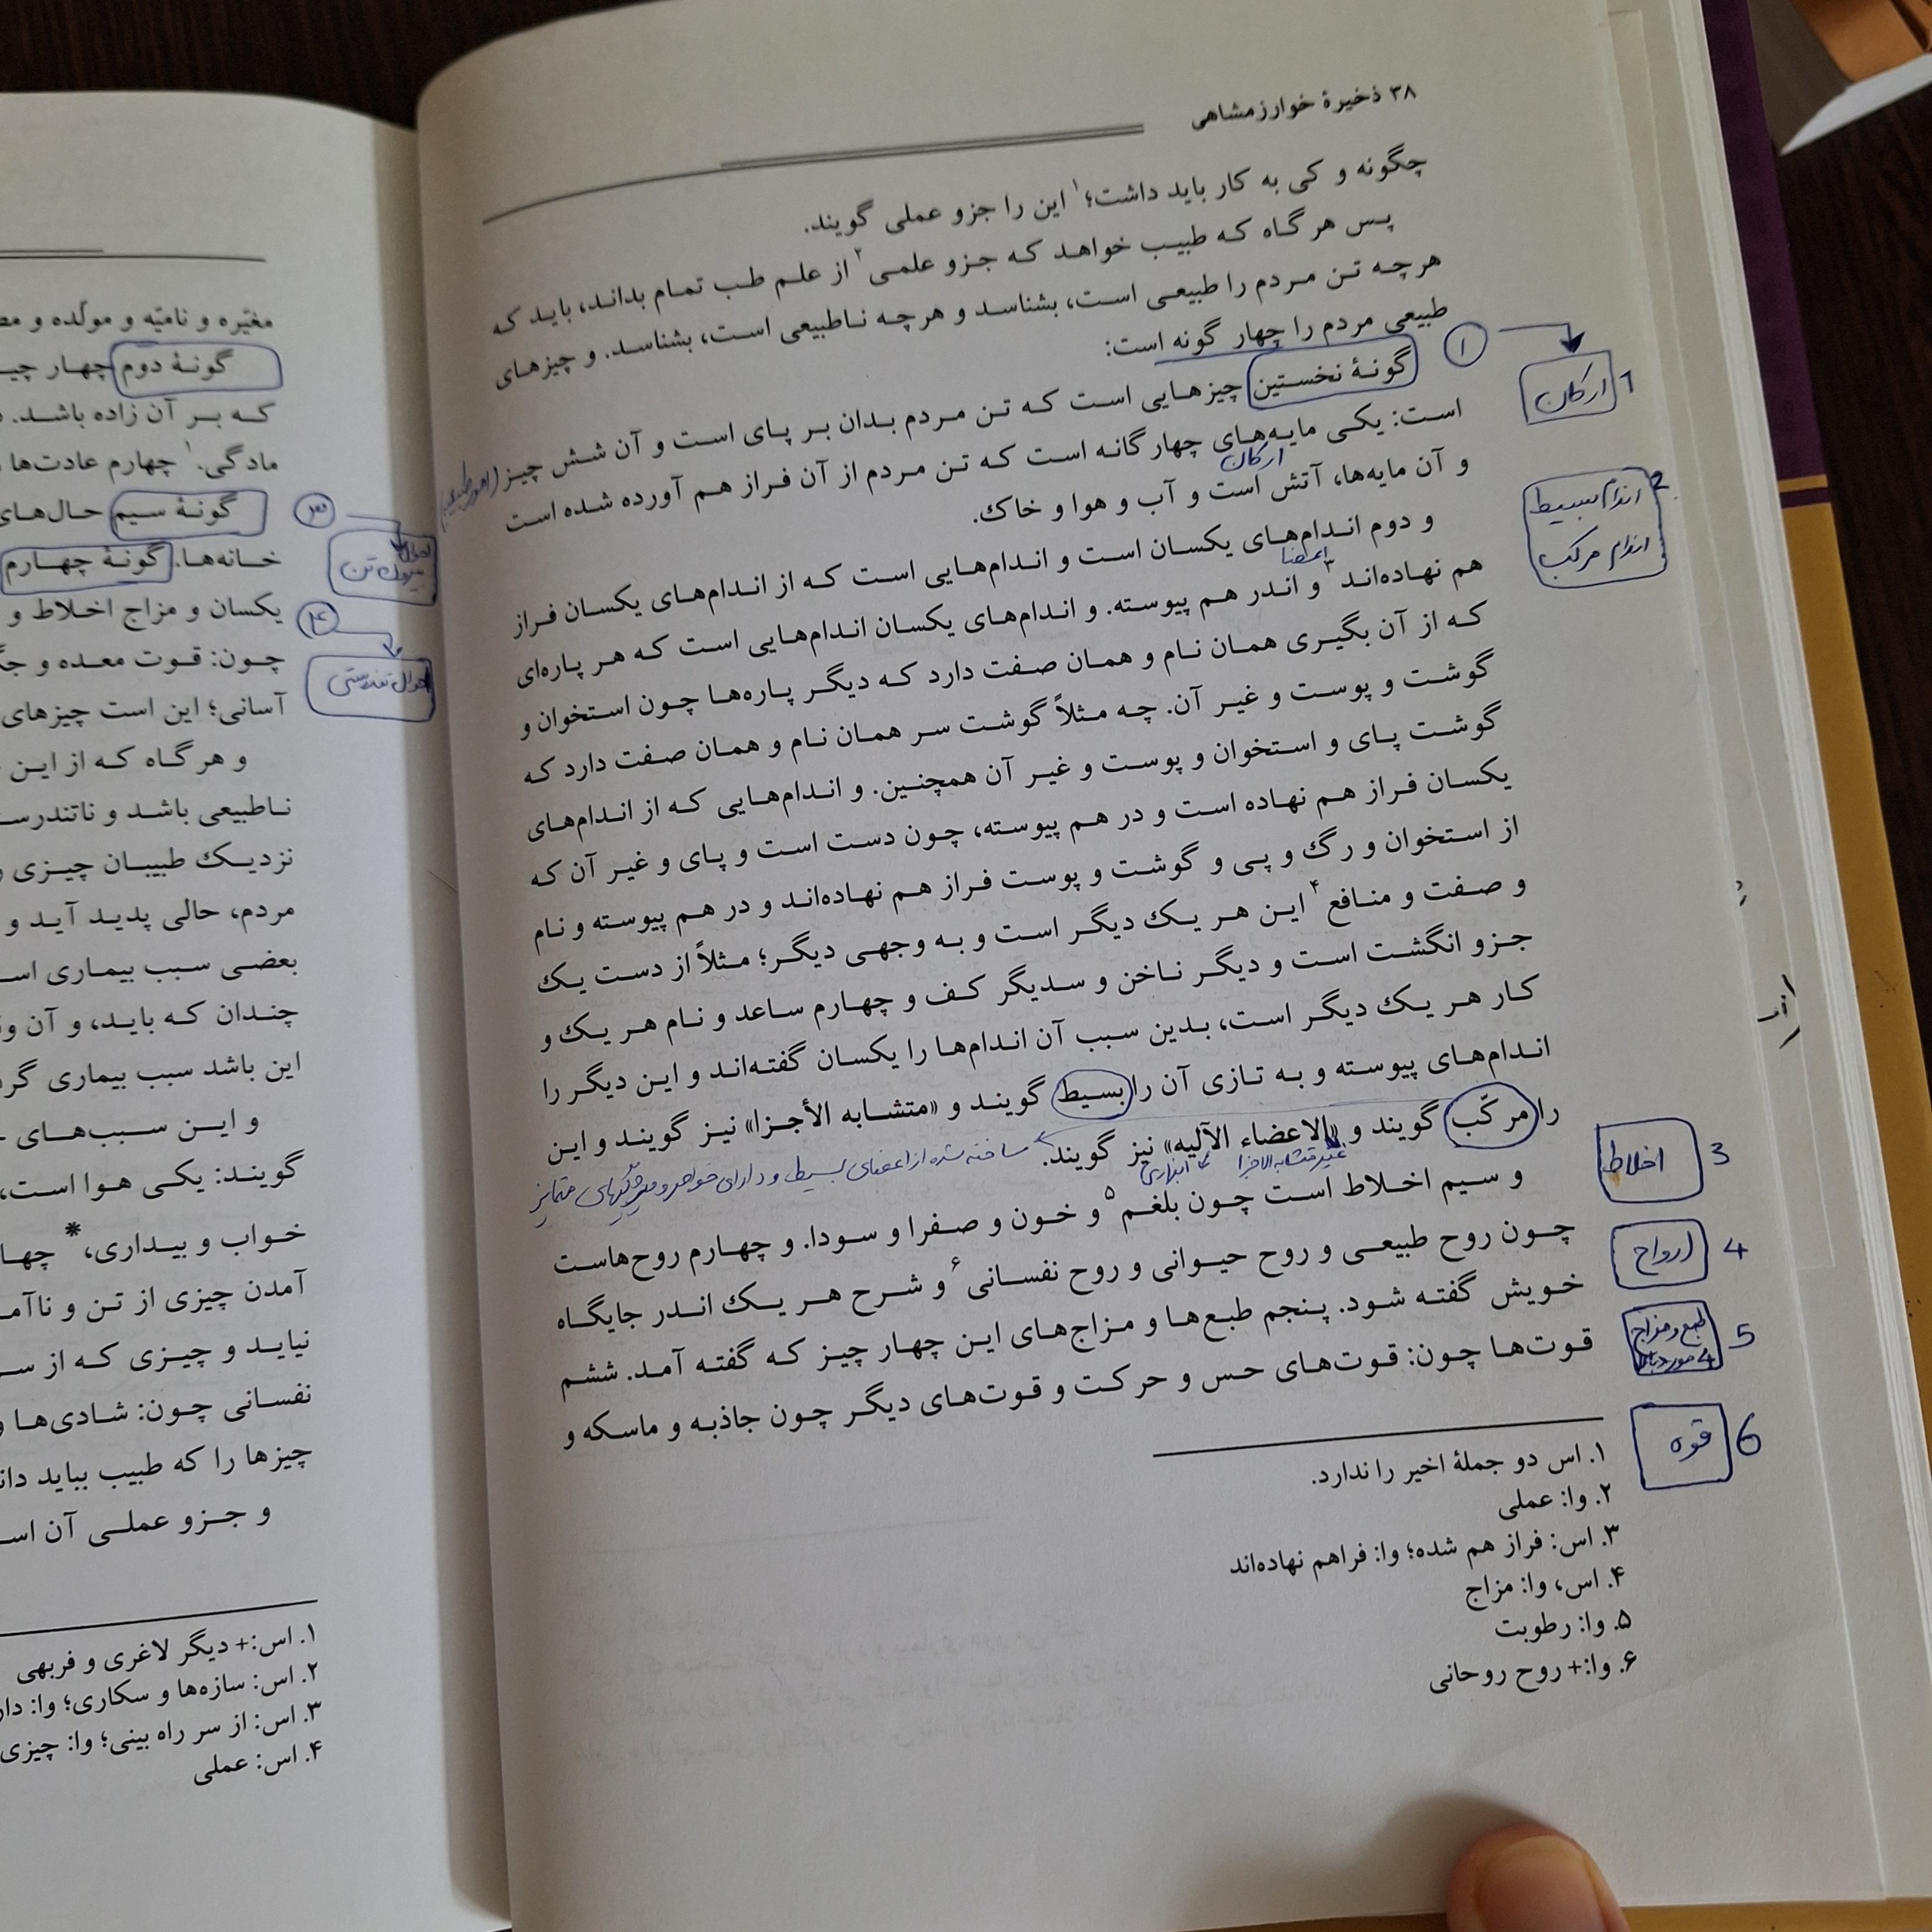 ۳۸ ذخیرهٔ خوارزمشاهی
چگونه و کی به کار باید داشت؛۱ این را جزو عملی گویند.
پس هر گاه که طبیب خواهد که جزو علمی۲ از علم طب تمام بداند، باید که
هرچه تن مردم را طبیعی است، بشناسد و هرچه ناطبیعی است، بشناسد. و چیزهای
طبیعی مردم را چهار گونه است:
۱
گونهٔ نخستین چیزهایی است که تن مردم بدان بر پای است و آن شش چیز
(امور طبیعیه)
است: یکی مایه‌های چهارگانه است که تن مردم از آن فراز هم آورده شده است
ارکان
و آن مایه‌ها، آتش است و آب و هوا و خاک.
و دوم اندام‌های یکسان است و اندام‌هایی است که از اندام‌های یکسان فراز
اعضا
هم نهاده‌اند۳ و اندر هم پیوسته. و اندام‌های یکسان اندام‌هایی است که هر پاره‌ای
که از آن بگیری همان نام و همان صفت دارد که دیگر پاره‌ها چون استخوان و
گوشت و پوست و غیر آن. چه مثلاً گوشت سر همان نام و همان صفت دارد که
گوشت پای و استخوان و پوست و غیر آن همچنین. و اندام‌هایی که از اندام‌های
یکسان فراز هم نهاده است و در هم پیوسته، چون دست است و پای و غیر آن که
از استخوان و رگ و پی و گوشت و پوست فراز هم نهاده‌اند و در هم پیوسته و نام
و صفت و منافع۴ این هر یک دیگر است و به وجهی دیگر؛ مثلاً از دست یک
جزو انگشت است و دیگر ناخن و سدیگر کف و چهارم ساعد و نام هر یک و
کار هر یک دیگر است، بدین سبب آن اندام‌ها را یکسان گفته‌اند و این دیگر را
اندام‌های پیوسته و به تازی آن را بسیط گویند و «متشابه الأجزا» نیز گویند و این
را مرکّب گویند و «الاعضاء الآلیه» نیز گویند.
غیر متشابه الاجزا
ابزاری
ساخته شده از اعضای بسیط و دارای خواص و ویژگیهای متمایز
و سیم اخلاط است چون بلغم۵ و خون و صفرا و سودا. و چهارم روح‌هاست
چون روح طبیعی و روح حیوانی و روح نفسانی۶ و شرح هر یک اندر جایگاه
خویش گفته شود. پنجم طبع‌ها و مزاج‌های این چهار چیز که گفته آمد. ششم
قوت‌ها چون: قوت‌های حس و حرکت و قوت‌های دیگر چون جاذبه و ماسکه و
۱. اس دو جملهٔ اخیر را ندارد.
۲. وا: عملی
۳. اس: فراز هم شده؛ وا: فراهم نهاده‌اند
۴. اس، وا: مزاج
۵. وا: رطوبت
۶. وا:+ روح روحانی
1 ارکان
2 اندام بسیط
اندام مرکب
3 اخلاط
4 ارواح
5 طبع و مزاج
4 مورد بالا
6 قوه
مغیّره و نامیّه و مولّده و
گونهٔ دوم چهار
که بر آن زاده باشد.
مادگی.۱ چهارم عادت‌ها
گونهٔ سیم حال‌های
۳
بیرون تن
خانه‌ها. گونهٔ چهارم
یکسان و مزاج اخلاط و
۴
احوال تندرستی
چون: قوت معده و
آسانی؛ این است چیزهای
و هر گاه که از این
ناطبیعی باشد و
نزدیک طبیبان چیزی
مردم، حالی پدید آید و
بعضی سبب بیماری
چندان که باید، و آن
این باشد سبب بیماری
و این سبب‌های
گویند: یکی هوا است،
خواب و بیداری،*
آمدن چیزی از تن و
نیاید و چیزی که از
نفسانی چون: شادی‌ها
چیزها را که طبیب بباید
و جزو عملی آن
۱. اس:+ دیگر لاغری و فربهی
۲. اس: سازه‌ها و سکاری؛ وا:
۳. اس: از سر راه بینی؛ وا: چیزی
۴. اس: عملی